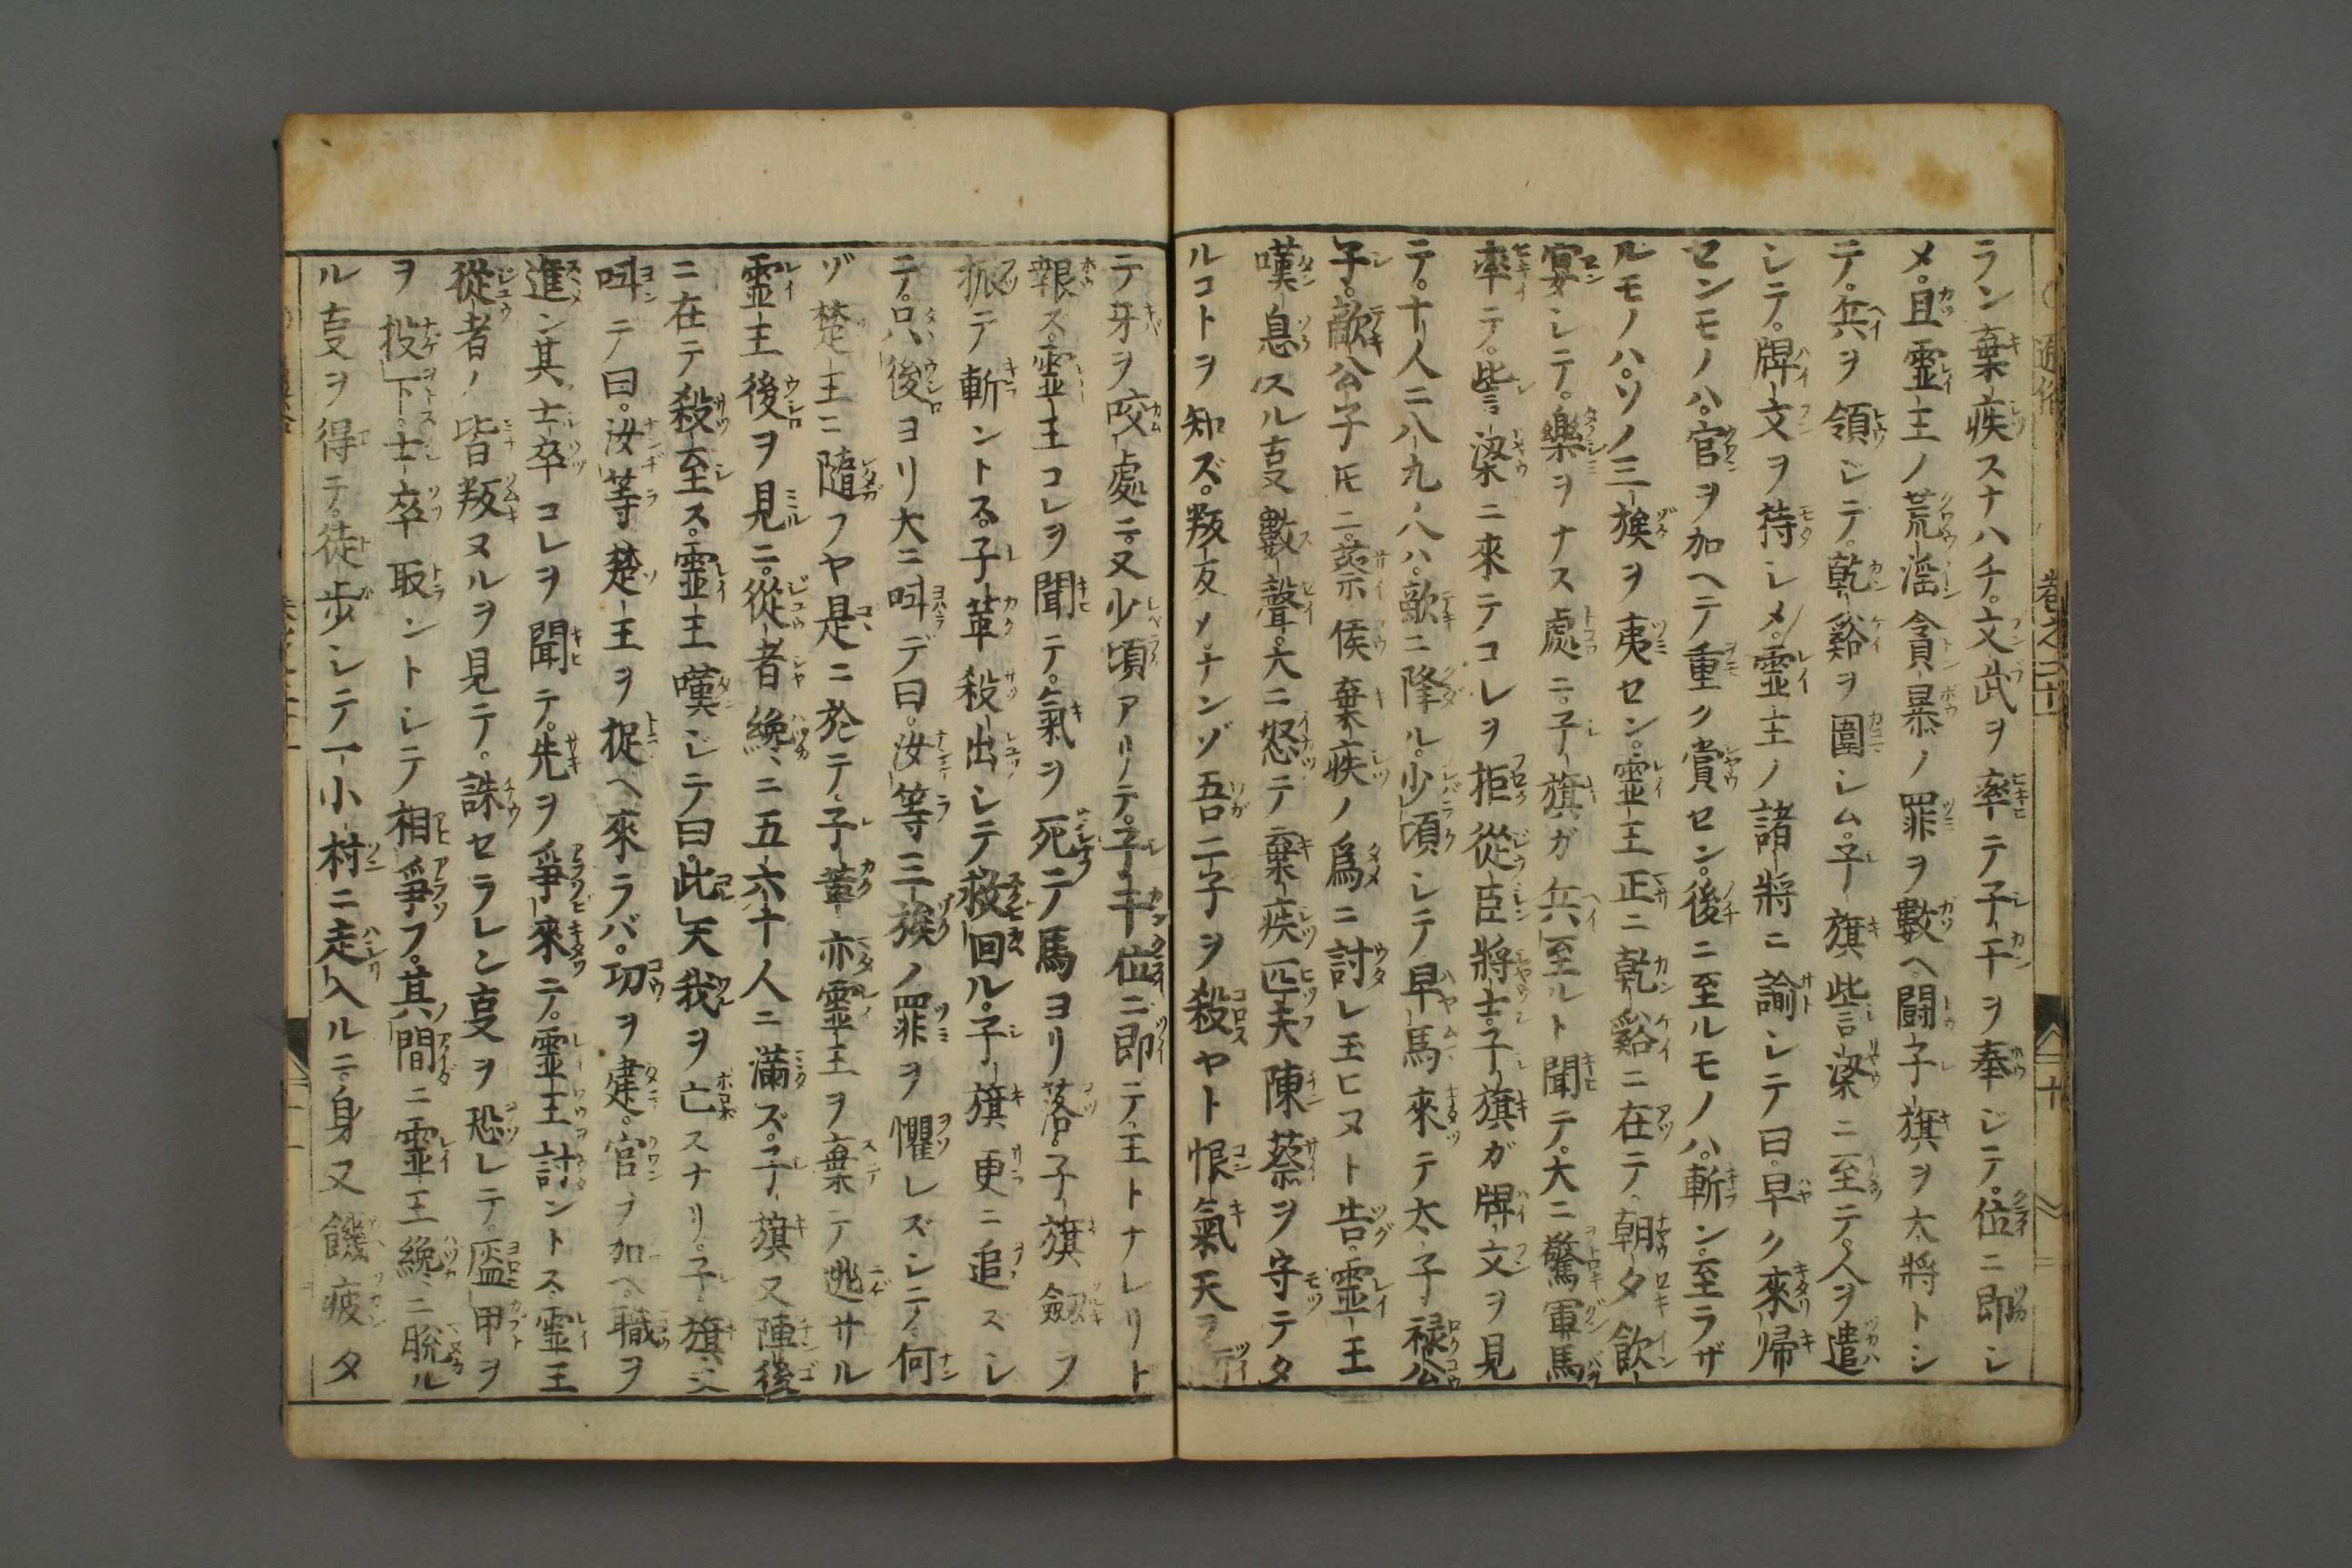 ラン棄疾スナハチ。文武ヲ率テ子干ヲ奉ジテ。位ニ即シ
メ。且霊王ノ荒淫貪暴ノ罪ヲ數ヘ。闘子旗ヲ大將トシ
テ。兵ヲ領ジテ。乾谿ヲ圍シム。子旗訾梁ニ至テ。人ヲ遣
シテ。牌文ヲ持シメ。霊王ノ諸將ニ諭シテ曰。早ク來帰
センモノハ。官ヲ加ヘテ重ク賞セン。後ニ至ルモノハ。斬ン。至ラザ
ルモノハ。ソノ三族ヲ夷セン。霊王正ニ乾谿ニ在テ。朝夕飲
宴シテ。樂ヲナス處ニ。子旗ガ兵至ルト聞テ。大ニ驚軍馬
率テ。訾梁ニ來テコレヲ拒從臣將士。子旗ガ牌文ヲ見
テ。十人ニ八九ハ。敵ニ降ル。少頃シテ早馬來テ太子禄公
子。敵公子氏ニ。蔡侯棄疾ノ爲ニ討レ玉ヒヌト告。霊王
嘆息スル𫝆數聲。大ニ怒テ棄疾匹夫陳蔡ヲ守テタ
ルコトヲ知ズ。叛友メ。ナンゾ吾二子ヲ殺ヤト恨氣天ヲ
テ牙ヲ咬處ニ。又少頃アリテ。子干位ニ即テ王トナレリト
報ズ。霊王コレヲ聞テ。氣ヲ死テ馬ヨリ落。子旗劔ヲ
抜テ斬ントス。子革殺出シテ救回ル。子旗更ニ追ズシ
テ。只後ヨリ大ニ呌デ曰。汝等三族ノ罪ヲ懼レズシテ。何
ゾ楚王ニ隨フヤ是ニ於テ。子革亦霊王ヲ棄テ逃サル
霊王後ヲ見ニ。從者纔ニ五六十人ニ滿ズ。子旗又陣後
ニ在テ殺至ス。霊王嘆ジテ曰。此天我ヲ亡スナリ。子旗又
呌テ曰。汝等楚王ヲ捉ヘ來ラバ。功ヲ建。官ヲ加ヘ。職ヲ
進ン其士卒コレヲ聞テ。先ヲ爭來テ。霊王討ントス。霊王
從者ノ皆叛ヌルヲ見テ。誅セラレン𫝆ヲ恐レテ。盔甲ヲ
ヲ投下。士卒取ントシテ相爭フ。其間ニ霊王纔ニ脱ル
ル𫝆ヲ得テ。徒歩シテ一小村ニ走入ルニ。身又饑疲タ